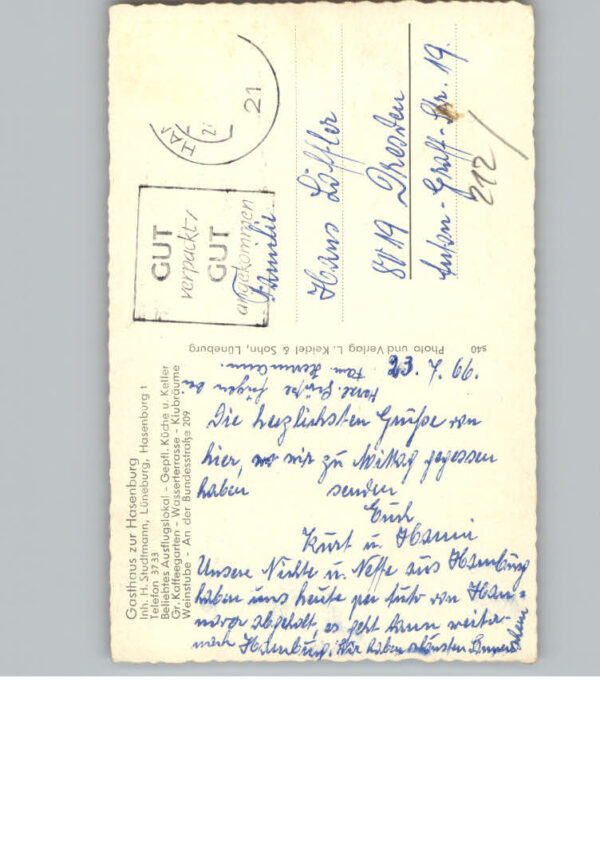 Gasthaus zur Hasenburg
Inh. H. Studtmann, Lüneburg, Hasenburg 1
Telefon 3733
Beliebtes Ausflugslokal - Gepfl. Küche u. Keller
Gr. Kaffeegarten - Wasserterrasse - Klubräume
Weinstube - An der Bundesstraße 209
23. 7. 66.
Die herzlichsten Grüße von
hier, wo wir zu Mittag gegessen
haben senden
Euch
Kurt u. Hanni
Unsere Nichte u. Neffe aus Hamburg
haben uns heute per Auto von Han=
nover abgeholt, es geht dann weiter
nach Hamburg. Wir haben schönsten Sonnenschein
Herzl. Grüße fügen bei
Fam.
Photo und Verlag L. Keidel & Sohn, Lüneburg
s40
GUT
verpackt
GUT
angekommen
21
Familie
Hans Löffler
8019 Dresden
Anton-Graff-Str. 19.
212/